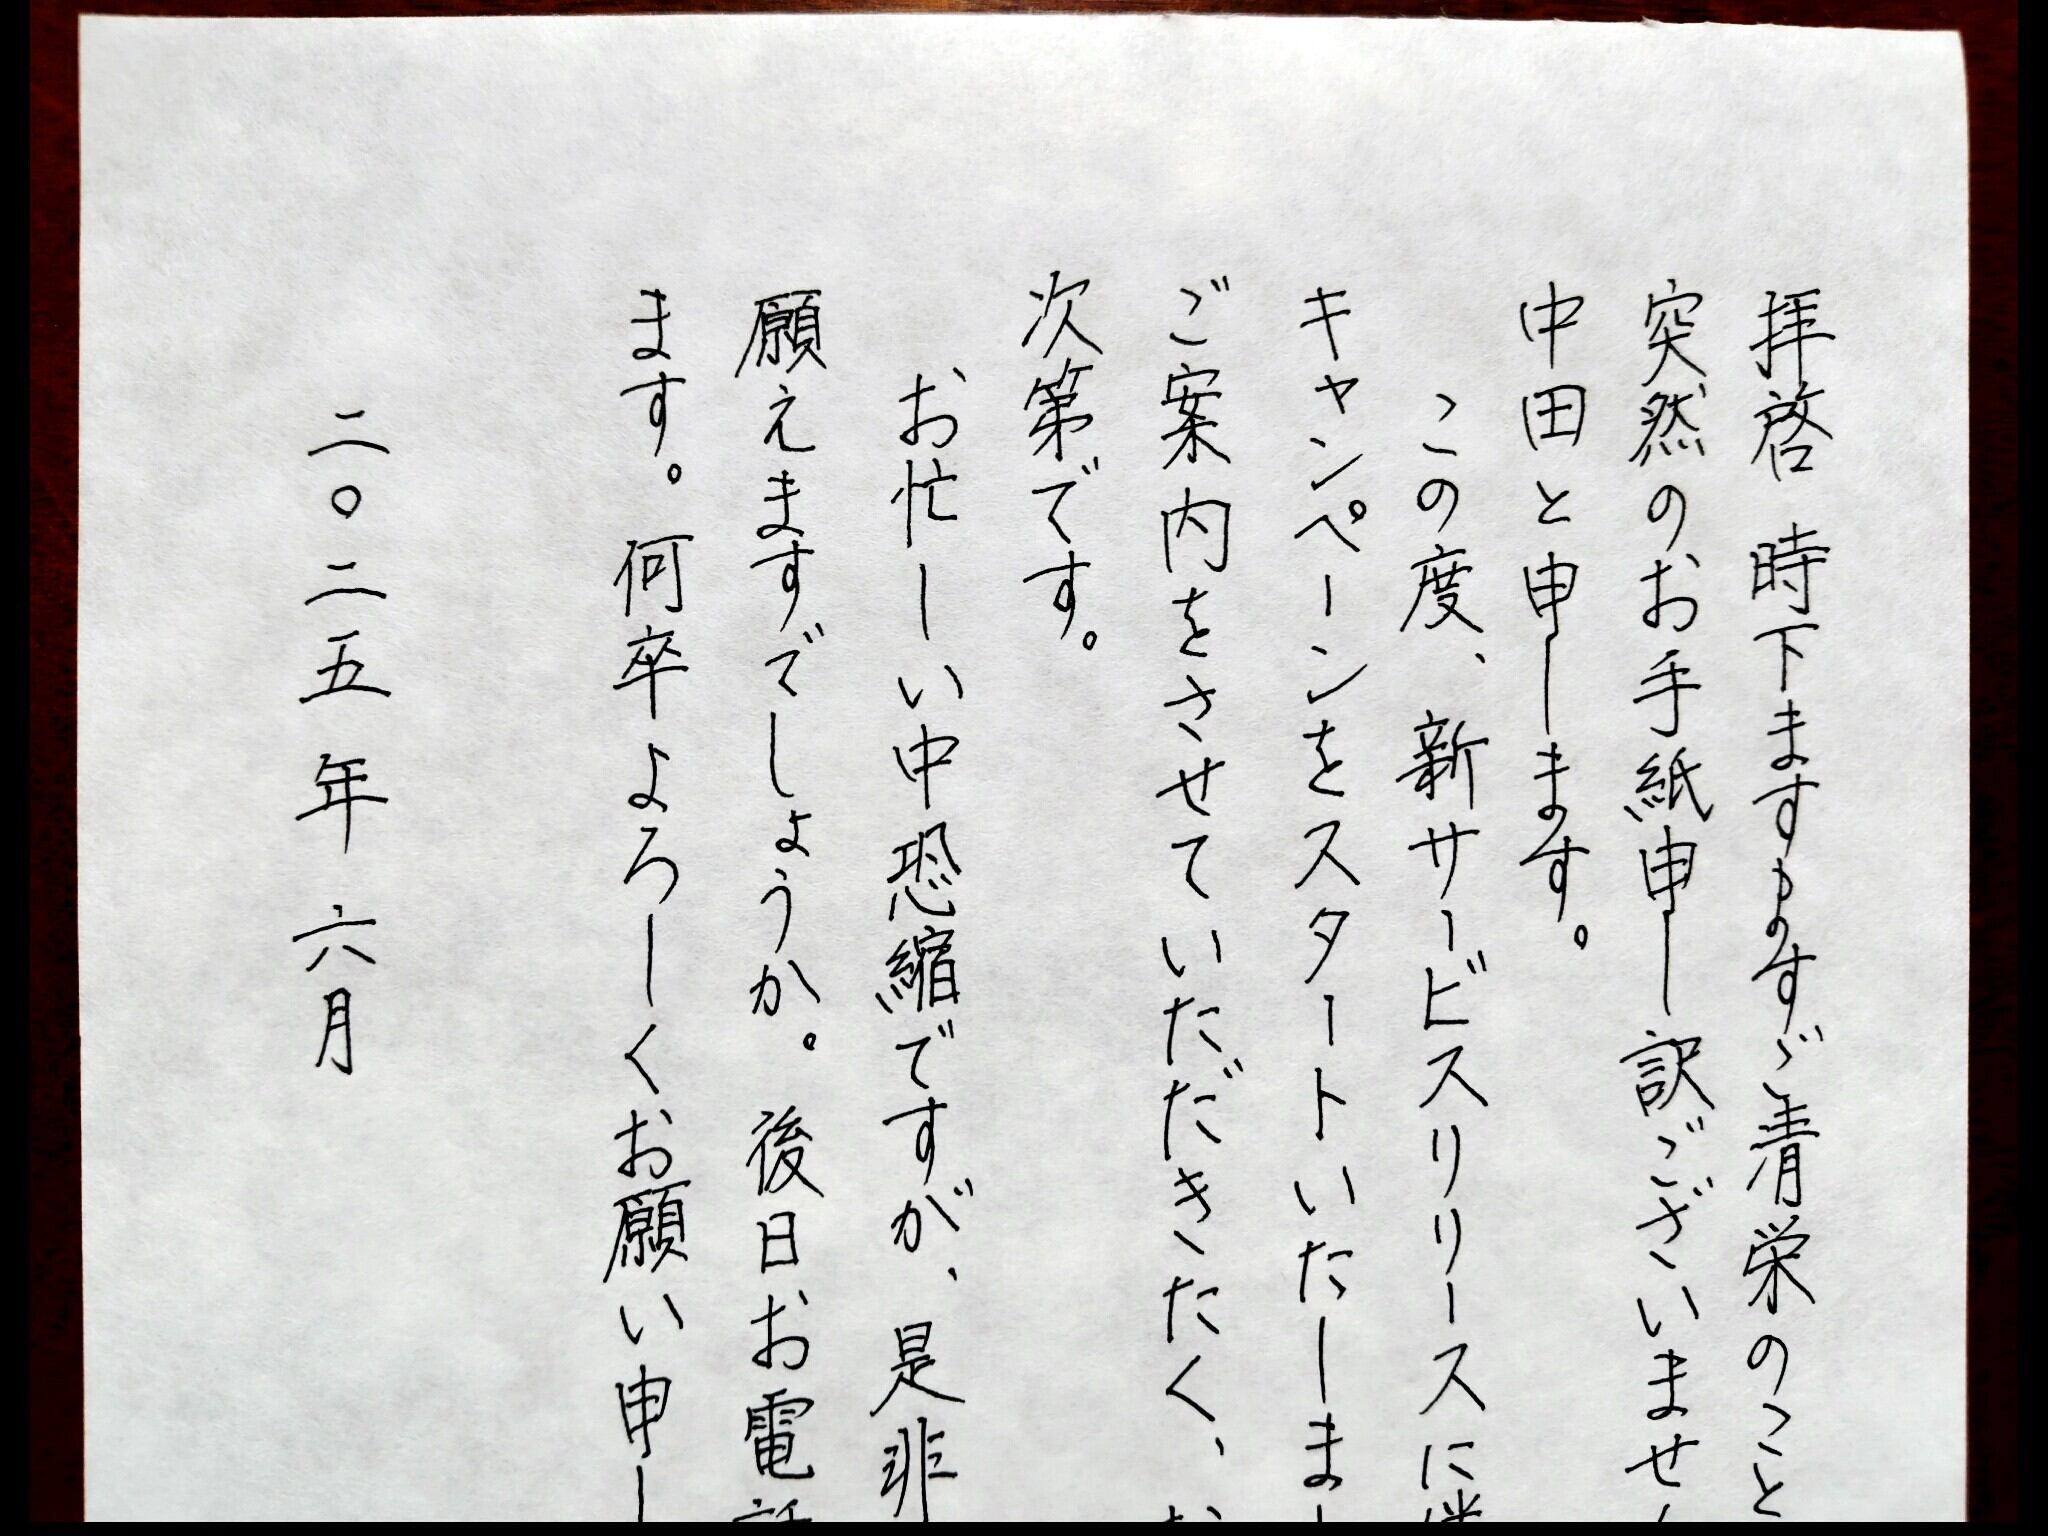 拝啓 時下ますますご清栄のこと
突然のお手紙申し訳ございませ
中田と申します。
この度、新サービスリリースに
キャンペーンをスタートいたしまし
ご案内をさせていただきたく、お
次第です。
お忙しい中恐縮ですが、是非
願えますでしょうか。後日お電話
ます。何卒よろしくお願い申し
二〇二五年 六月